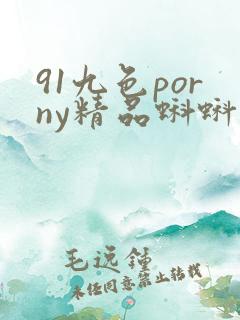 91九色por
ny精品蝌蚪
毛远锺
未经同意禁止转载